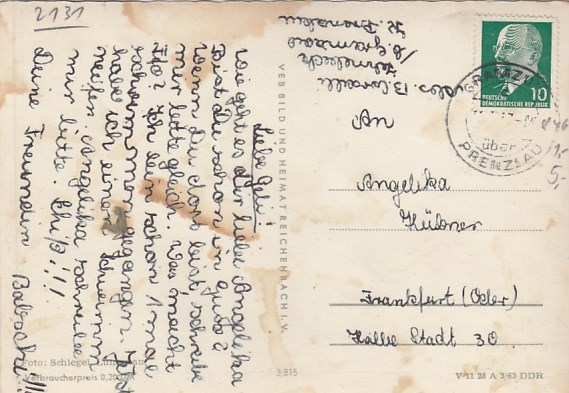 2131
Liebe Geli!
wie geht es dir liebe Angelika
Bist du schon in
Wenn du dort bist, schreibe
mir bitte gleich. Was macht
Ilo? Ich bin schon 1 mal
schwimmen gegangen. Jetzt
habe ich einen Schwimm
reifen. Angelika schreibe
mir bitte. Tschüß!!!
Deine Freundin
Foto: Schlegel,
Verbraucherpreis 0,20 DM
VEB BILD UND HEIMAT REICHENBACH I. V.
3815
b Gramzow
Kr. Prenzlau
An
Angelika
Hübner
Frankfurt (Oder)
Halbe Stadt 30.
DEUTSCHE
DEMOKRATISCHE REPUBLIK
10
über
PRENZLAU
1,-
5,-
V 11 28 A 3/63 DDR